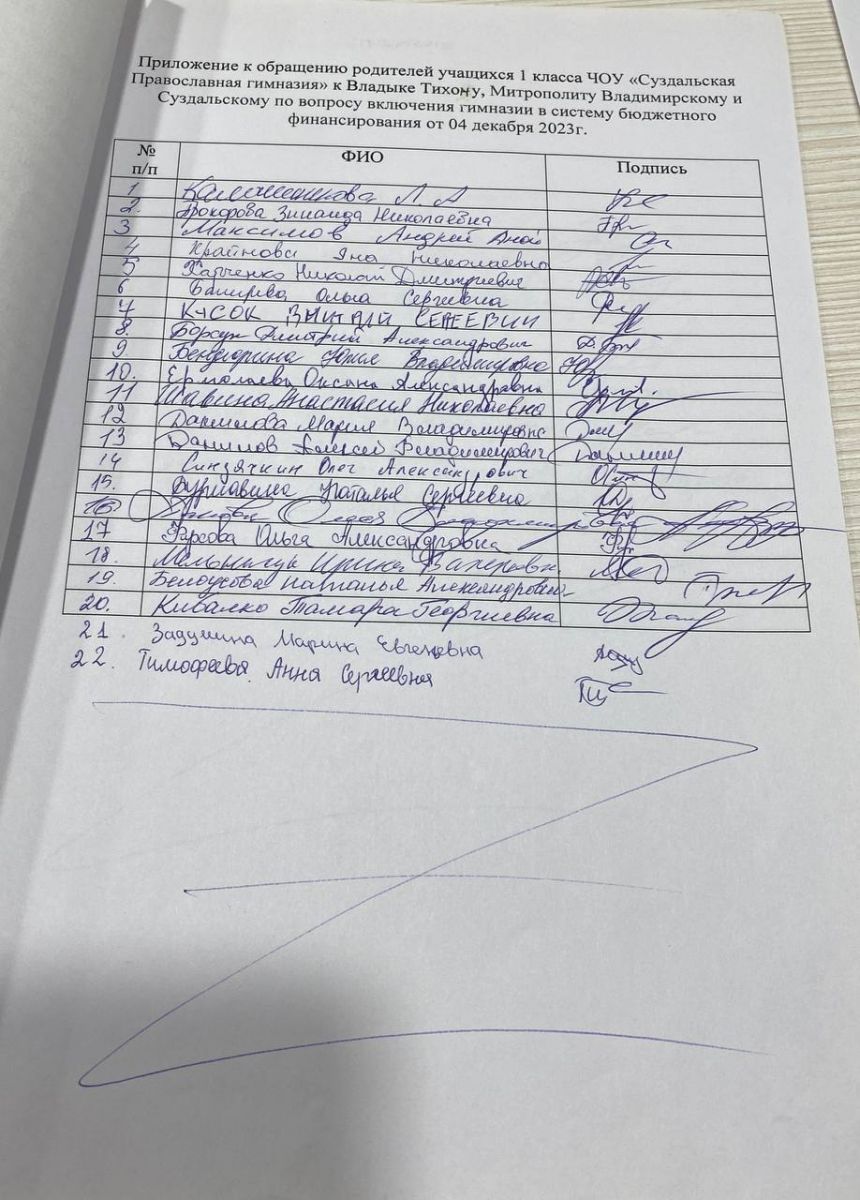 Приложение к обращению родителей учащихся 1 класса ЧОУ «Суздальская
Православная гимназия» к Владыке Тихону, Митрополиту Владимирскому и
Суздальскому по вопросу включения гимназии в систему бюджетного
финансирования от 04 декабря 2023г.
№ п/п ФИО Подпись
1 Калашникова Л. А
2. Зинаида Николаевна
3 Максимов Андрей
4 Крайнова Яна Николаевна
5 Харченко Николай Дмитриевич
6 Ольга Сергеевна
7 КУСОК
8. Борсук Дмитрий Александрович
9 Юлия Владимировна
10. Ермолаева Оксана Александровна
11 Анастасия Николаевна
12 Данилова Мария Владимировна
13 Данилов Алексей Владимирович
14 Синдячкин Олег Александрович
15. Наталья Сергеевна
16
17 Ольга Александровна
18. Мельничук Ирина
19. Белоусова Наталья Александровна
20. Кивалко Тамара Георгиевна
21. Задушина Марина Евгеньевна
22. Тимофеева Анна Сергеевна